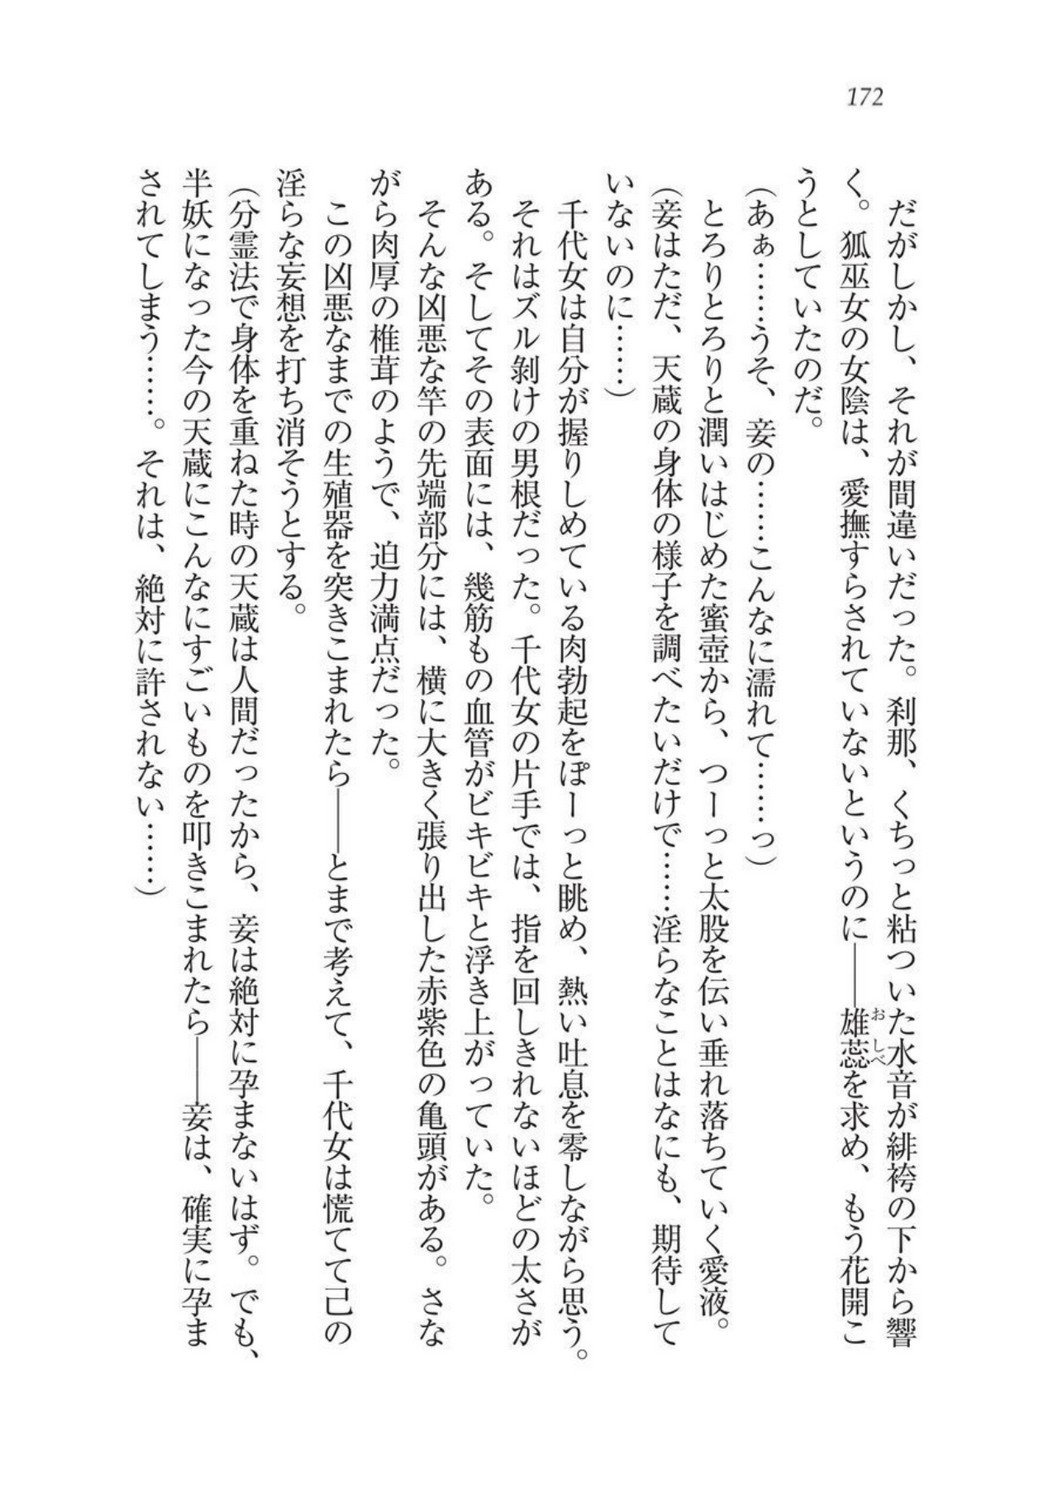 172
だがしかし、それが間違いだった。刹那、くちっと粘ついた水音が緋袴の下から響
く。狐巫女の女陰は、愛撫すらされていないというのに――雄蕊を求め、もう花開こ
おしべ
うとしていたのだ。
(あぁ……うそ、妾の……こんなに濡れて……っ)
とろりとろりと潤いはじめた蜜壺から、つーっと太股を伝い垂れ落ちていく愛液。
(妾はただ、天蔵の身体の様子を調べたいだけで……淫らなことはなにも、期待して
いないのに……)
千代女は自分が握りしめている肉勃起をぽーっと眺め、熱い吐息を零しながら思う。
それはズル剥けの男根だった。千代女の片手では、指を回しきれないほどの太さが
ある。そしてその表面には、幾筋もの血管がビキビキと浮き上がっていた。
そんな凶悪な竿の先端部分には、横に大きく張り出した赤紫色の亀頭がある。さな
がら肉厚の椎茸のようで、迫力満点だった。
この凶悪なまでの生殖器を突きこまれたら――とまで考えて、千代女は慌てて己の
淫らな妄想を打ち消そうとする。
(分霊法で身体を重ねた時の天蔵は人間だったから、妾は絶対に孕まないはず。でも、
半妖になった今の天蔵にこんなにすごいものを叩きこまれたら――妾は、確実に孕ま
されてしまう……。それは、絶対に許されない……)